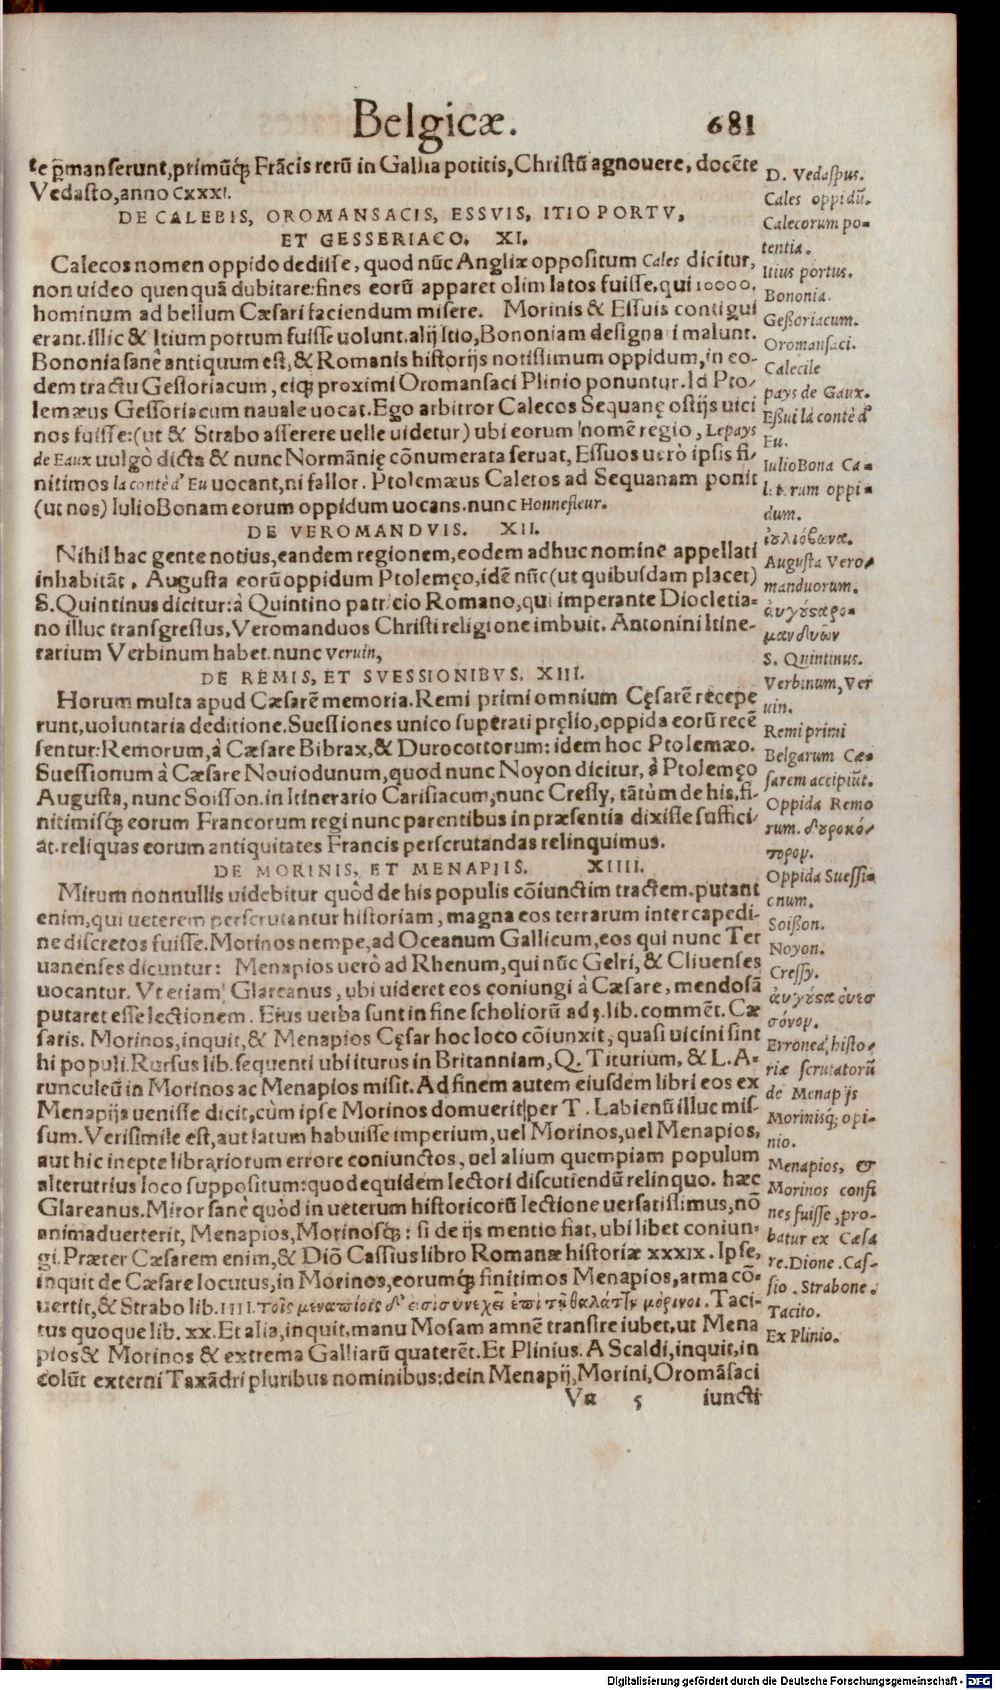 Belgicæ. 681
te p̃manserunt, primũq́; Frãcis rerũ in Gallia potitis, Christũ agnouere, docẽte
Vedasto, anno CXXXI.
DE CALEBIS, OROMANSACIS, ESSVIS, ITIO PORTV,
ET GESSERIACO. XI.
Calecos nomen oppido dedisse, quod nũc Angliæ oppositum Cales dicitur,
non uideo quenquã dubitare: fines eorũ apparet olim latos fuisse, qui 10000.
hominum ad bellum Cæsari faciendum misere. Morinis & Essuis contigui
erant. illic & Itium portum fuisse uolunt. alij Itio, Bononiam designari malunt.
Bononia sanè antiquum est, & Romanis historijs notissimum oppidum, in eo-
dem tractu Gessoriacum, eiq́; proximi Oromansaci Plinio ponuntur. Id Pto-
lemæus Gessoriacum nauale uocat. Ego arbitror Calecos Sequanę ostijs uici
nos fuisse: (ut & Strabo asserere uelle uidetur) ubi eorum nomẽ regio, Le pays
de Eaux uulgò dicta & nunc Normãnię cõnumerata seruat, Essuos uerò ipsis fi-
nitimos la contè d' Eu uocant, ni fallor. Ptolemæus Caletos ad Sequanam ponit
(ut nos) IulioBonam eorum oppidum uocans. nunc Honnefleur.
DE VEROMANDVIS. XII.
Nihil hac gente notius, eandem regionem, eodem adhuc nomine appellati
inhabitãt. Augusta eorũ oppidum Ptolemęo, idẽ nũc (ut quibusdam placet)
S. Quintinus dicitur: à Quintino patricio Romano, qui imperante Diocletia-
no illuc transgressus, Veromanduos Christi religione imbuit. Antonini Itine-
rarium Verbinum habet. nunc Veruin,
DE REMIS, ET SVESSIONIBVS. XIII.
Horum multa apud Cæsarẽ memoria. Remi primi omnium Cęsarẽ recepe
runt, uoluntaria deditione. Suessiones unico superati pręlio, oppida eorũ recẽ
sentur: Remorum, à Cæsare Bibrax, & Durocottorum: idem hoc Ptolemæo.
Suessionum à Cæsare Nouiodunum, quod nunc Noyon dicitur, à Ptolemęo
Augusta, nunc Soisson. in Itinerario Carisiacum, nunc Cressy, tãtùm de his, fi-
nitimisq́; eorum Francorum regi nunc parentibus in præsentia dixisse suffici-
at. reliquas eorum antiquitates Francis perscrutandas relinquimus.
DE MORINIS, ET MENAPIIS. XIIII.
Mirum nonnullis uidebitur quòd de his populis cõiunctim tractem. putant
enim, qui ueterem perscrutantur historiam, magna eos terrarum intercapedi-
ne discretos fuisse. Morinos nempe, ad Oceanum Gallicum, eos qui nunc Ter
uanenses dicuntur: Menapios uerò ad Rhenum, qui nũc Gelri, & Cliuenses
uocantur. Vt etiam Glareanus, ubi uideret eos coniungi à Cæsare, mendosã
putaret esse lectionem. Eius uerba sunt in fine scholiorũ ad 3. lib. commẽt. Cæ
saris. Morinos, inquit, & Menapios Cęsar hoc loco cõiunxit, quasi uicini sint
hi populi. Rursus lib. sequenti ubi iturus in Britanniam, Q. Titurium, & L. A-
runculeũ in Morinos ac Menapios misit. Ad finem autem eiusdem libri eos ex
Menapijs uenisse dicit, cùm ipse Morinos domuerit per T. Labienũ illuc mis-
sum. Verisimile est, aut latum habuisse imperium, uel Morinos, uel Menapios,
aut hic inepte librariorum errore coniunctos, uel alium quempiam populum
alterutrius loco suppositum: quod equidem lectori discutiendũ relinquo. hæc
Glareanus. Miror sanè quòd in ueterum historicorũ lectione uersatissimus, nõ
animaduerterit, Menapios, Morinosq́;: si de ijs mentio fiat, ubi libet coniun-
gi. Præter Cæsarem enim, & Diõ Cassius libro Romanæ historiæ XXXIX. Ipse,
inquit de Cæsare locutus, in Morinos, eorumq́; finitimos Menapios, arma cõ-
uertit, & Strabo lib. IIII. τοῖς μεναπίοις δ' εἰσι συνεχεῖ ἐπὶ τῇ θαλάττῃ μόρινοι. Taci-
tus quoque lib. XX. Et alia, inquit, manu Mosam amnẽ transire iubet, ut Mena
pios & Morinos & extrema Galliarũ quaterẽt. Et Plinius. A Scaldi, inquit, in
colũt externi Taxãdri pluribus nominibus: dein Menapij, Morini, Oromãsaci
Vu 5 iuncti
D. Vedaspus.
Cales oppidũ.
Calecorum po-
tentia.
Itius portus.
Bononia.
Geßoriacum.
Oromansaci.
Calecile
pays de Gaux.
Eßui la contè d'
Eu.
IulioBona Ca-
leterum oppi-
dum.
ἰουλιόβωνα.
Augusta Vero-
manduorum.
ἀυγούσα ρο-
μανδυῶν
S. Quintinus.
Verbinum, Ver
uin.
Remi primi
Belgarum Cæ-
sarem accipiũt.
Oppida Remo
rum. δουροκό-
τορομ.
Oppida Suessi-
onum.
Soißon.
Noyon.
Cressy.
ἀυγούσα ὀυεσ
σόνομ.
Erronea, histo-
riæ scrutatorũ
de Menapijs
Morinisq́; opi-
nio.
Menapios, &
Morinos confi
nes fuisse, pro-
batur ex Cæsa
re. Dione. Cas-
sio. Strabone.
Tacito.
Ex Plinio.
Digitalisierung gefördert durch die Deutsche Forschungsgemeinschaft - DFG